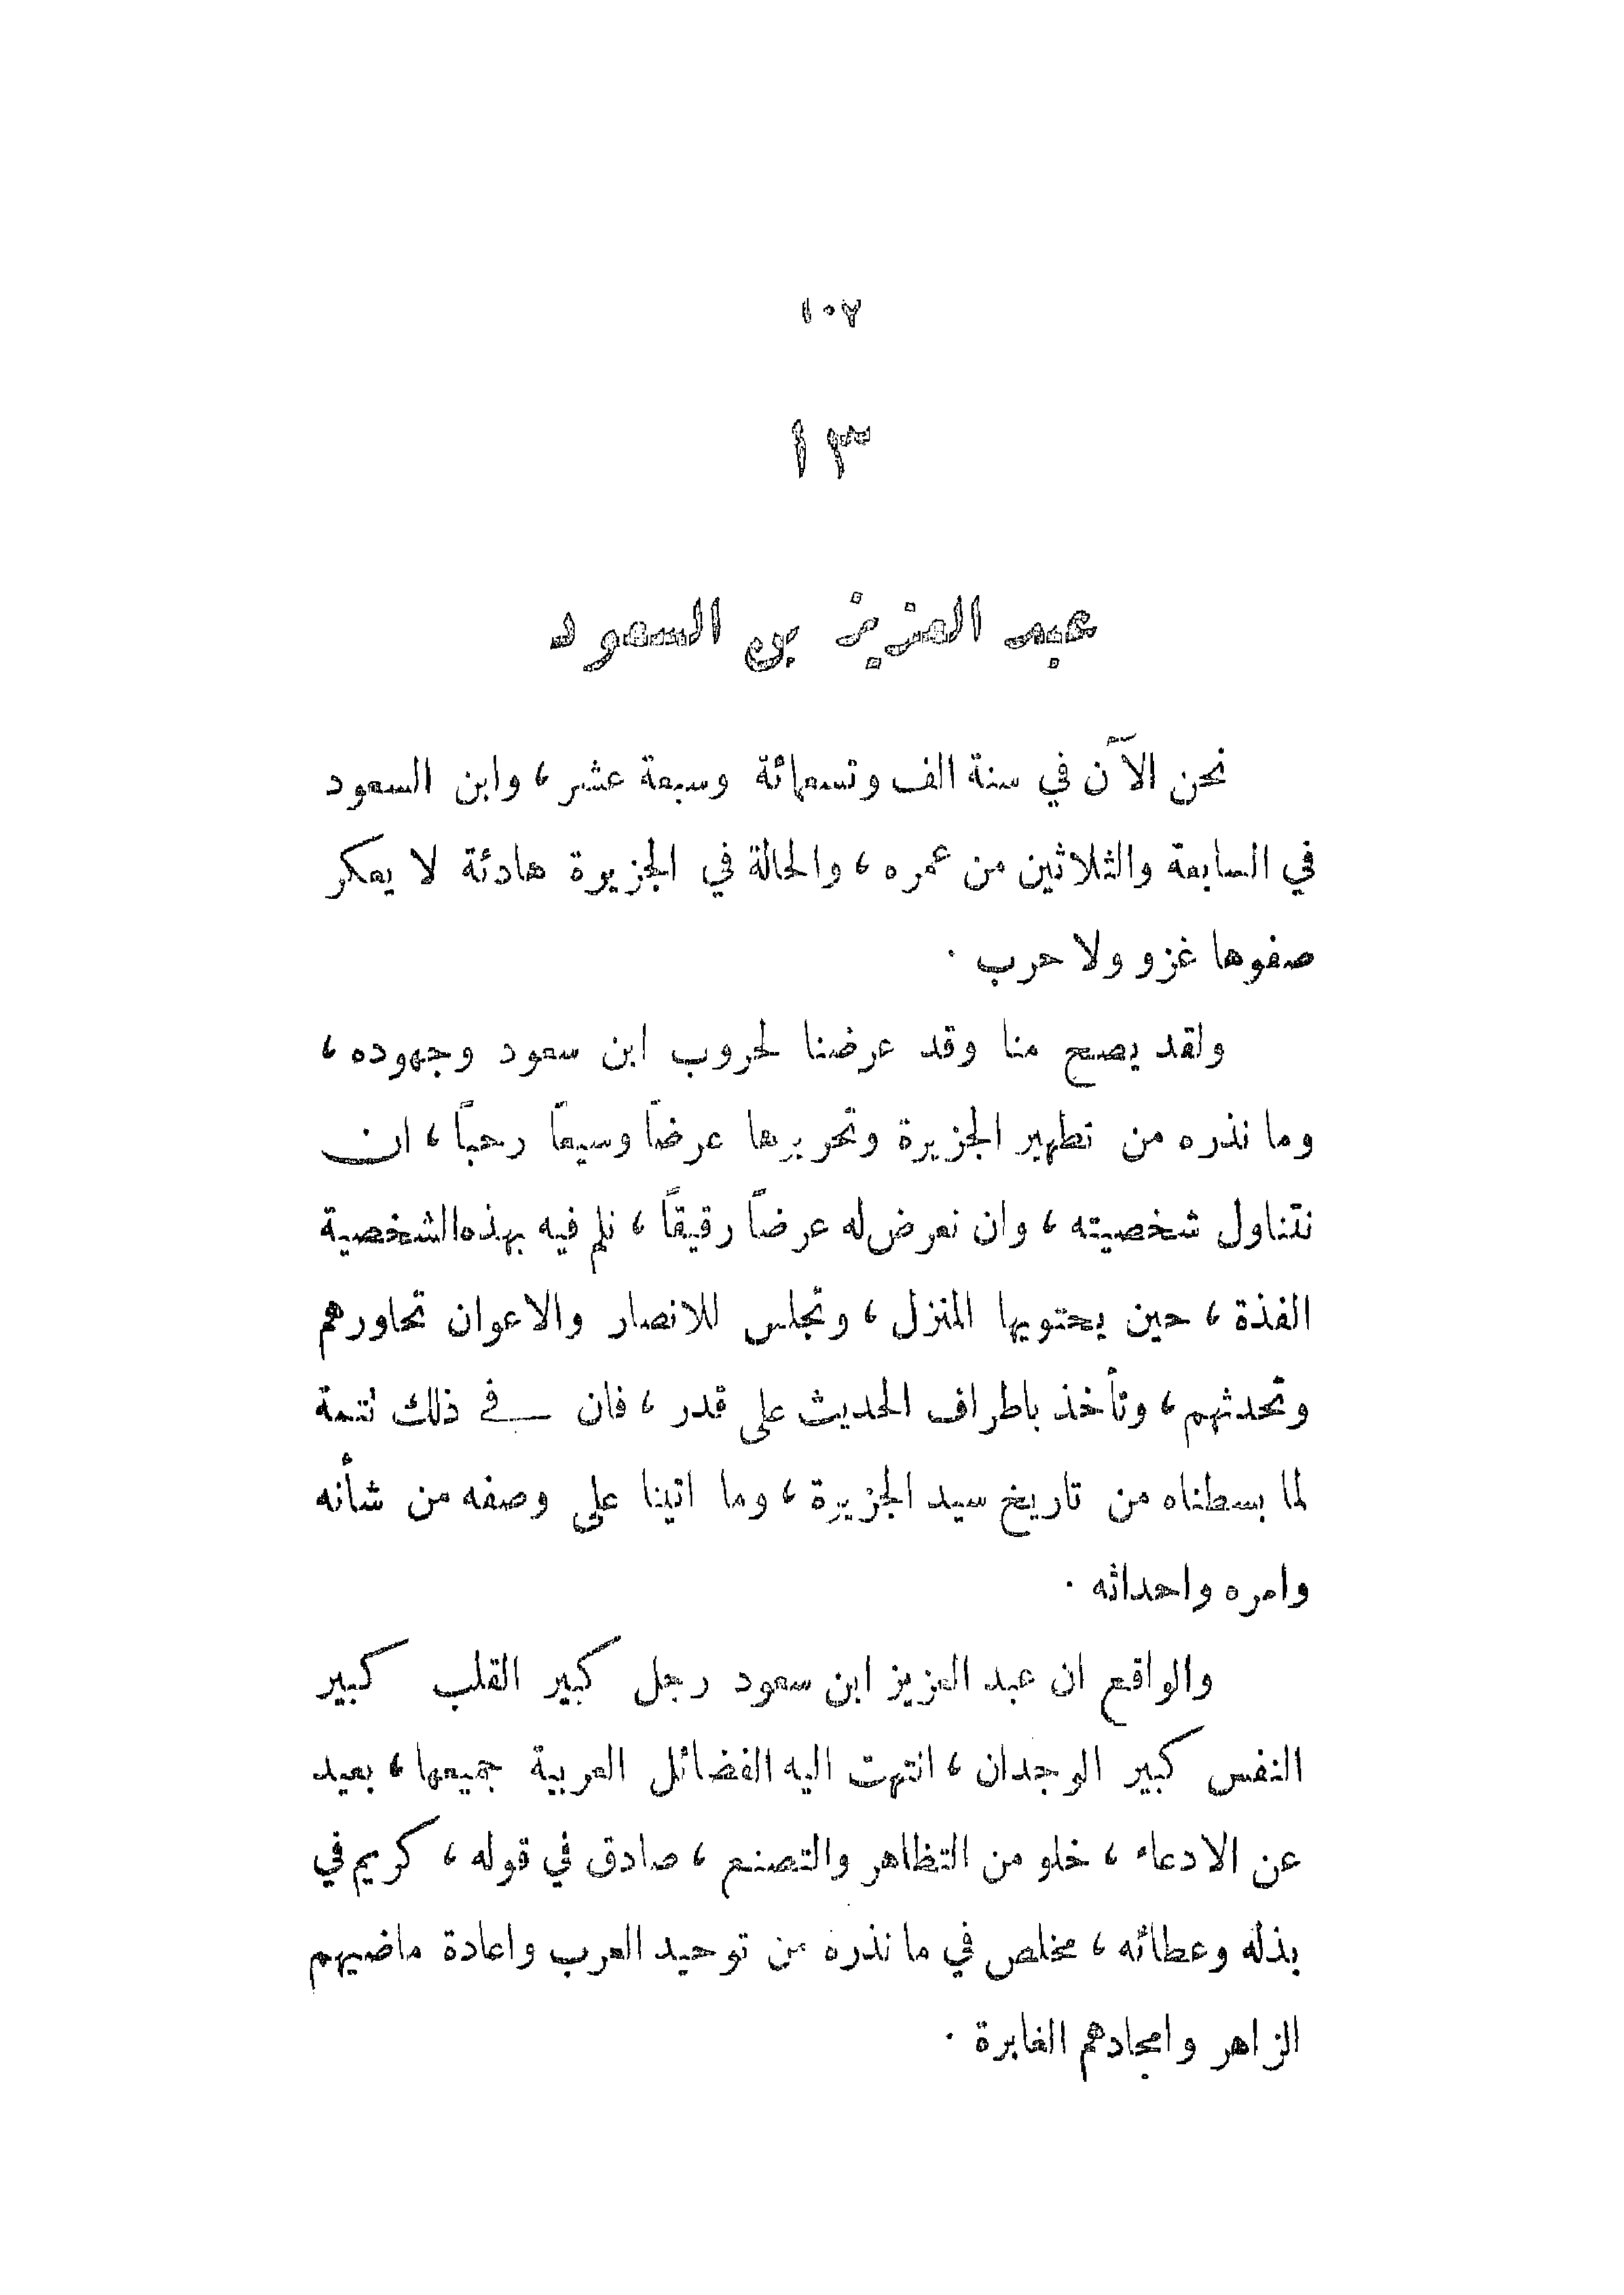 ١٠٧
١٣
عبد العزيز بن السعود
نحن الآن في سنة الف وتسعمائة وسبعة عشر، وابن السعود
في السابعة والثلاثين من عمره، والحالة في الجزيرة هادئة لا يعكر
صفوها غزو ولا حرب .
ولقد يصح منا وقد عرضنا لحروب ابن سعود وجهوده،
وما نذره من تطهير الجزيرة وتحريرها عرضاً وسيعاً رحباً، ان
نتناول شخصيته، وان نعرض له عرضاً رقيقاً، نلم فيه بهذه الشخصية
الفذة، حين يحتويها المنزل، وتجلس للانصار والاعوان تحاورهم
وتحدثهم، وتأخذ باطراف الحديث على قدر، فان في ذلك تتمة
لما بسطناه من تاريخ سيد الجزيرة، وما اتينا على وصفه من شأنه
وامره واحداثه .
والواقع ان عبد العزيز ابن سعود رجل كبير القلب كبير
النفس كبير الوجدان، انتهت اليه الفضائل العربية جميعها، بعيد
عن الادعاء، خلو من التظاهر والتصنع، صادق في قوله، كريم في
بذله وعطائه، مخلص في ما نذره من توحيد العرب واعادة ماضيهم
الزاهر وامجادهم الغابرة .